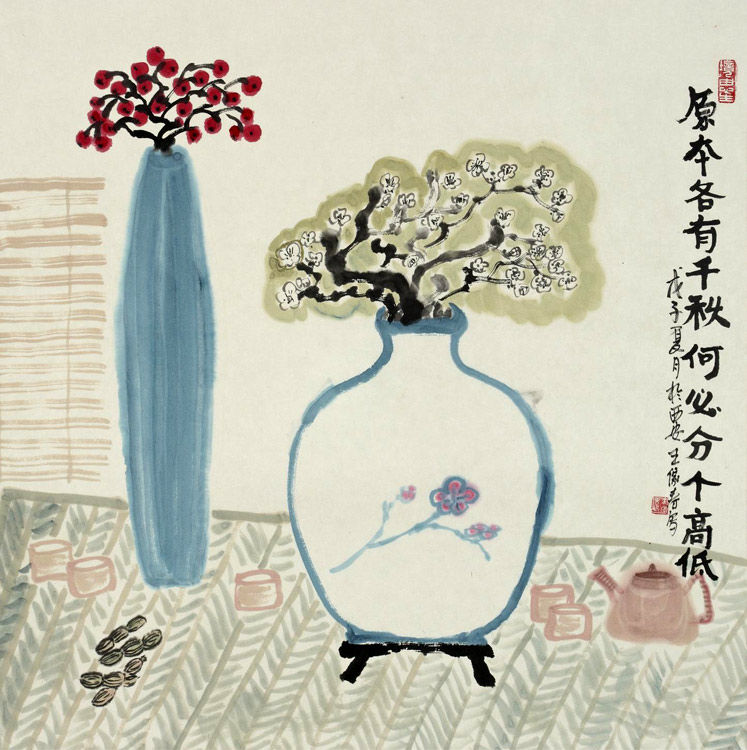 原本各有千秋何必分个高低
戊子夏月于西安王保安写